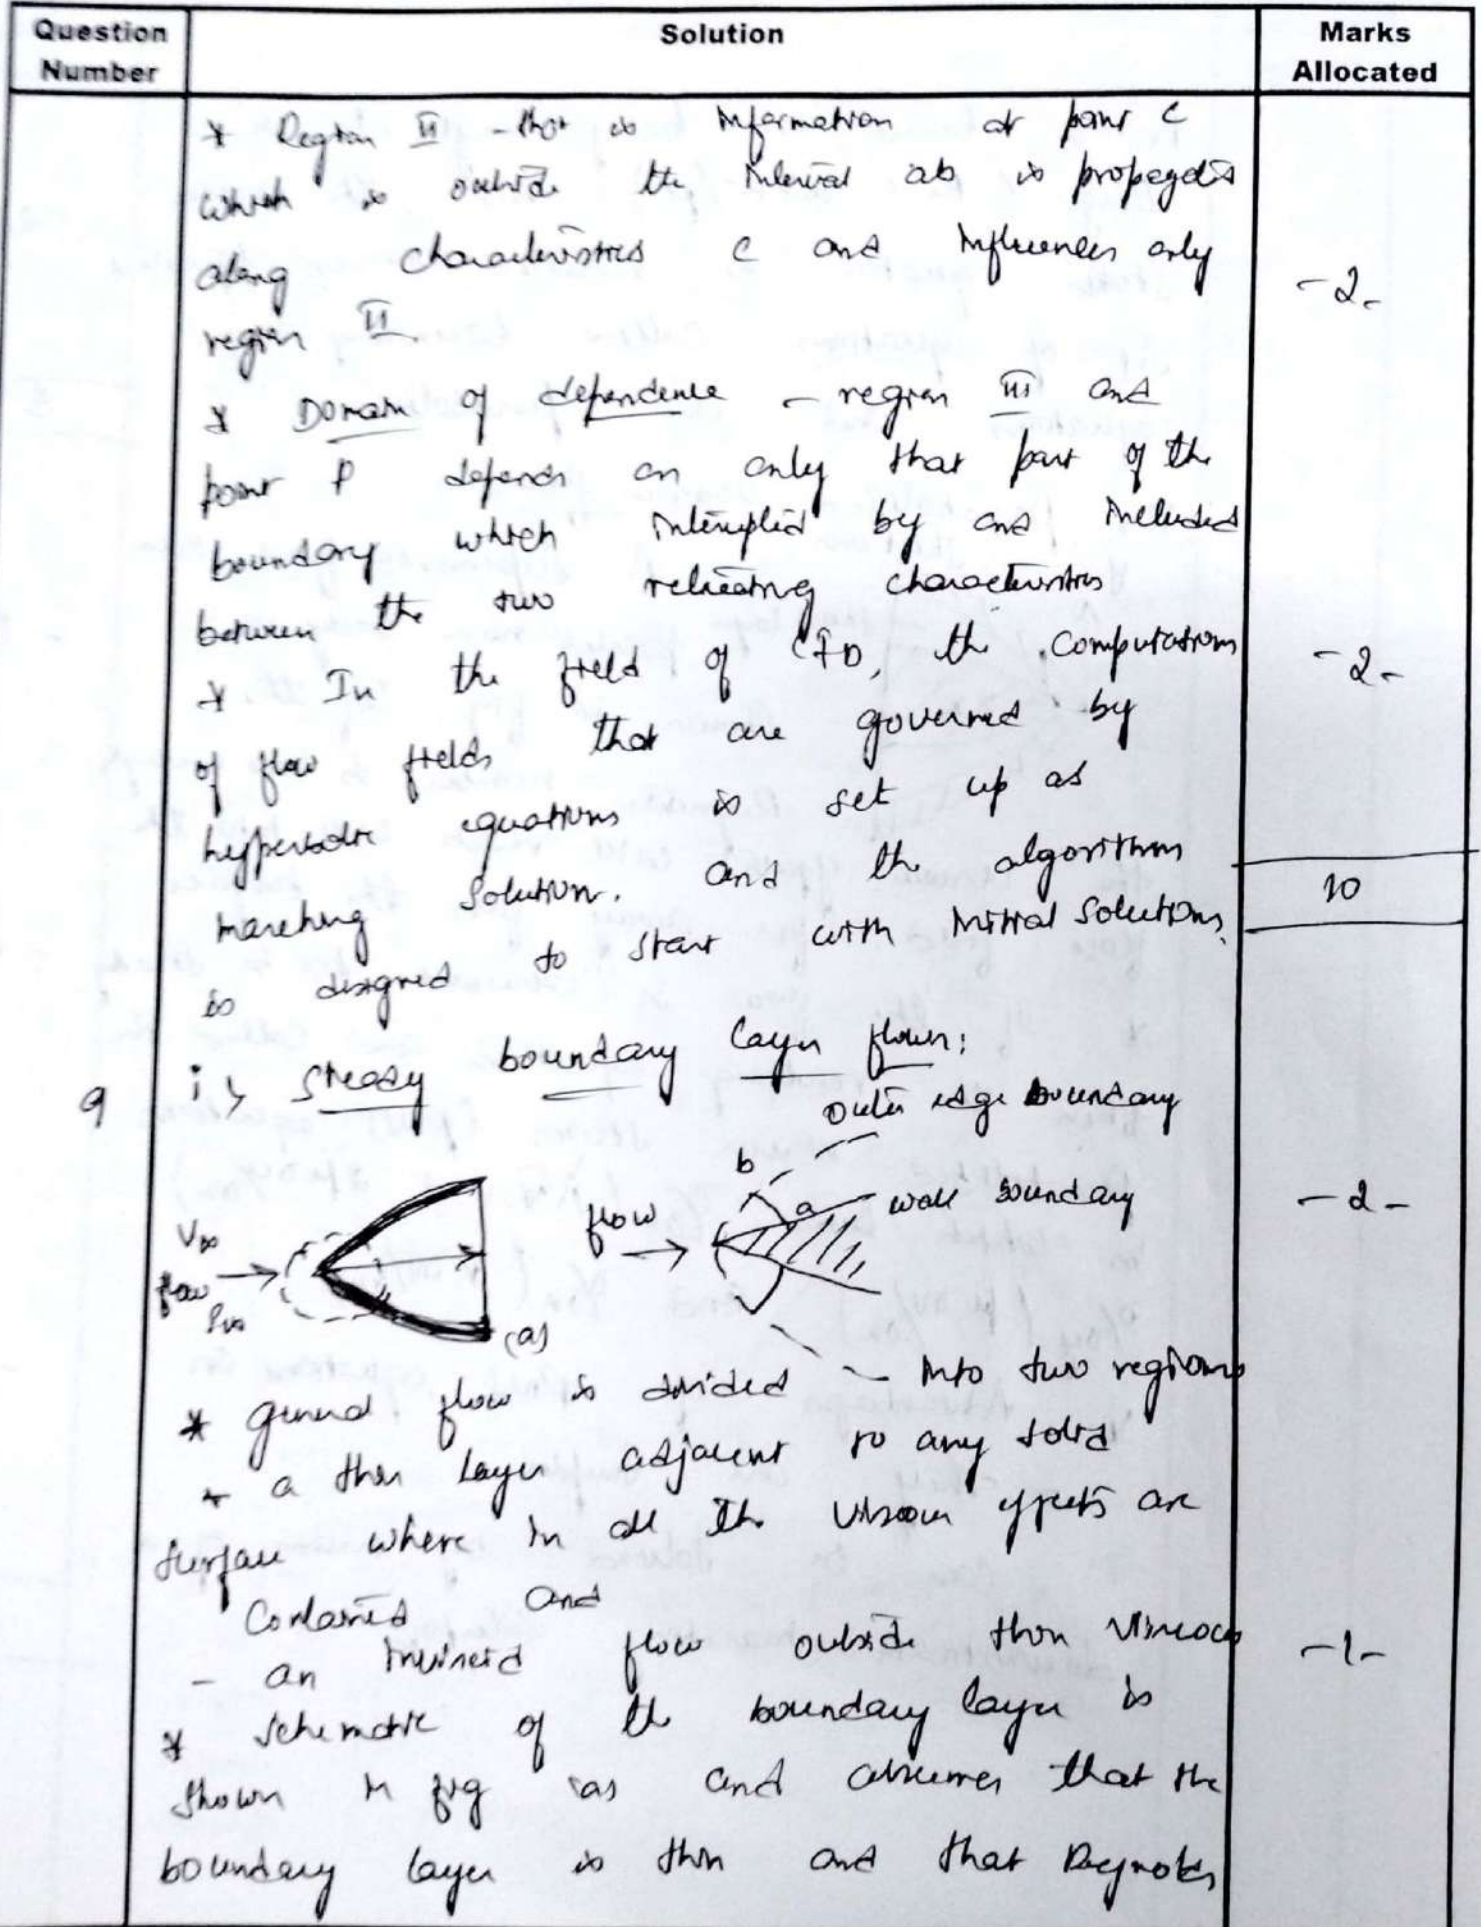 Question Number
Solution
Marks Allocated
* Region II - that is information at point c
which is outside the interval ab is propagates
along characteristics c and influences only
region II
-2-
* Domain of dependence - region III and
point P depends on only that part of the
boundary which by and included
between the two characteristics
* In the field of CFD, the computations
-2-
of flow fields that are governed by
hyperbolic equations is set up as
marching solution. and the algorithm
10
is designed to start with initial solutions.
9 i) Steady boundary layer flows:
outer edge boundary
b
a
wall boundary
-2-
V∞
flow
P∞
flow
(a)
* general flow is divided - into two regions
* a thin layer adjacent to any solid
surface where in all the viscous effects are
contained and
- an inviscid flow outside thin viscous
-1-
* schematic of the boundary layer is
shown in fig (a) and assumes that the
boundary layer is thin and that Reynolds